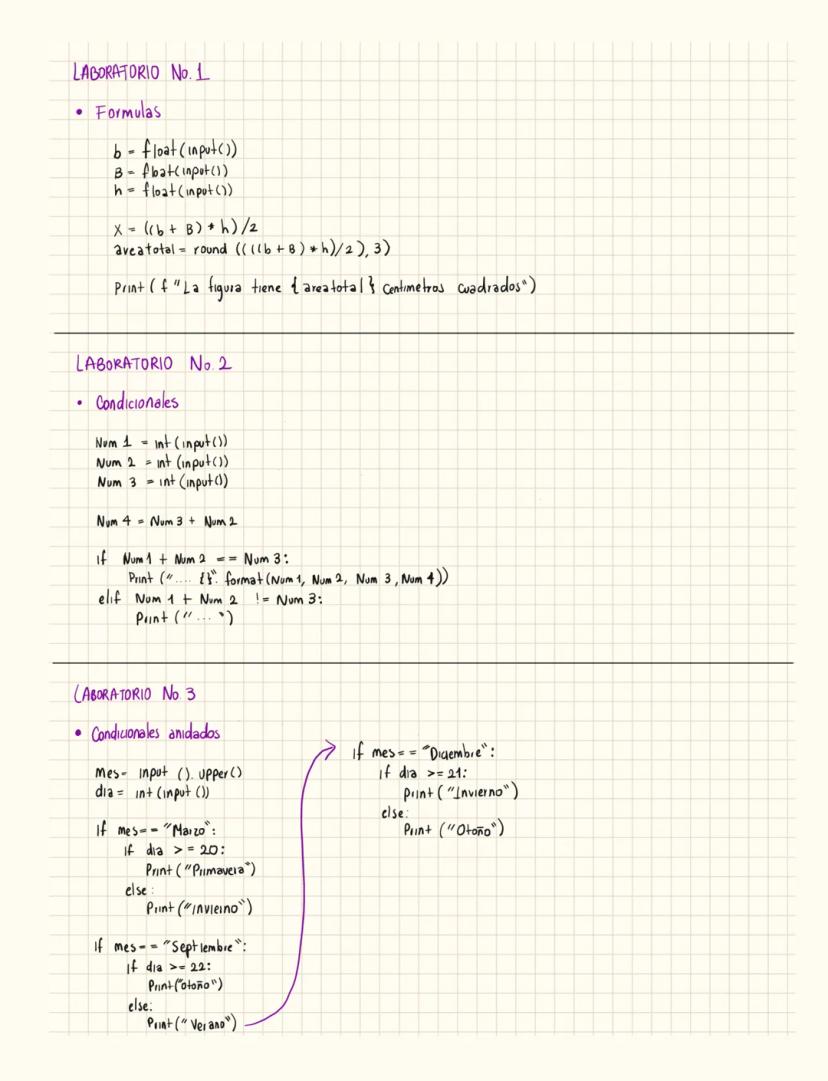 LABORATORIO No. 1
• Formulas
b = float(input())
B = float(input())
h = float(input())
X = ((b + B) * h) /2
areatotal = round ((((b + B) * h)/2), 3)
Print (f "La figura tiene {areatotal} centimetros cuadrados")
LABORATORIO No. 2
• Condicionales
Num 1 = int (input())
Num 2 = int (input())
Num 3 = int (input())
Num 4 = Num 3 + Num 2
if Num 1 + Num 2 == Num 3:
Print (".... {}". format (Num 1, Num 2, Num 3, Num 4))
elif Num 1 + Num 2 != Num 3:
Print (" ... ")
LABORATORIO No 3
• Condicionales anidados
mes= input (). upper()
dia = int (input ())
if mes== "Marzo":
if dia >= 20:
Print ("Primavera")
else:
Print ("Invierno")
if mes== "Septiembre":
if dia >= 22:
Print("otoño")
else:
Print (" Verano")
if mes== "Diciembre":
if dia >= 21:
print ("Invierno")
else:
Print ("Otoño")